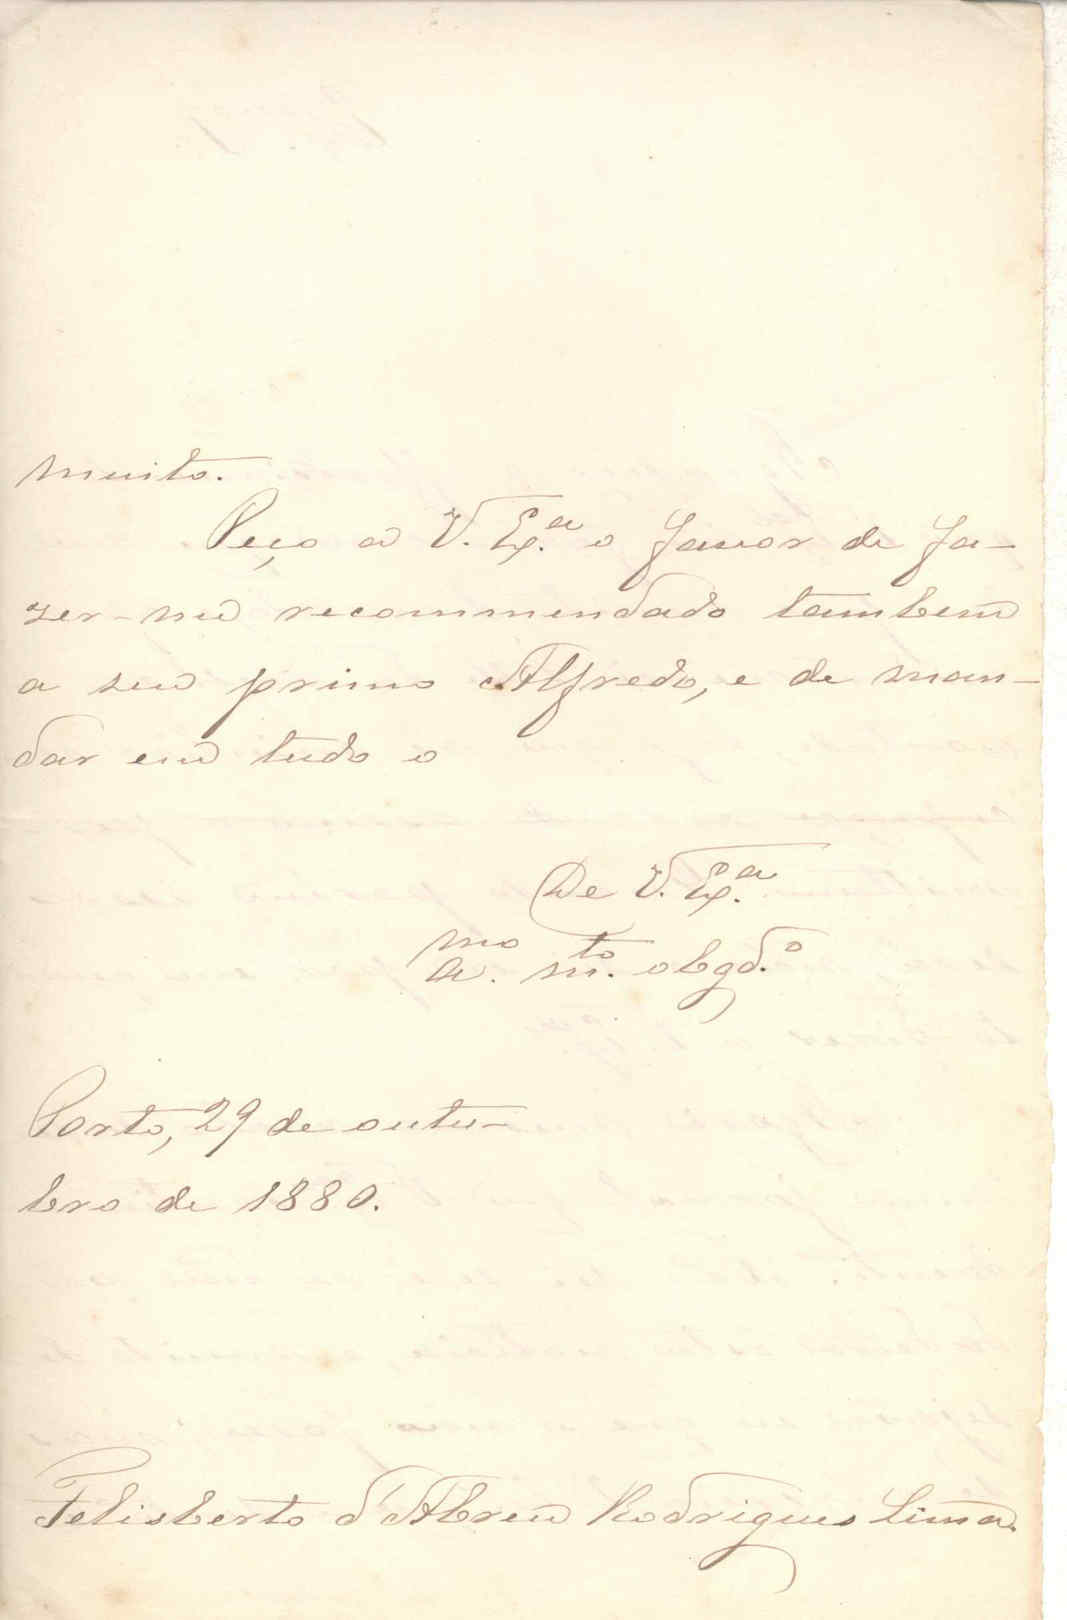 muito.
Peço a V. Ex.ª o favor de fa-
zer-me recommendado tambem
a seu primo Alfredo, e de man-
dar em tudo o
De V. Ex.ª
mo to
a. m. obgd.º
Porto, 29 de outu-
bro de 1880.
Felisberto d'Abreu Rodrigues Lima.